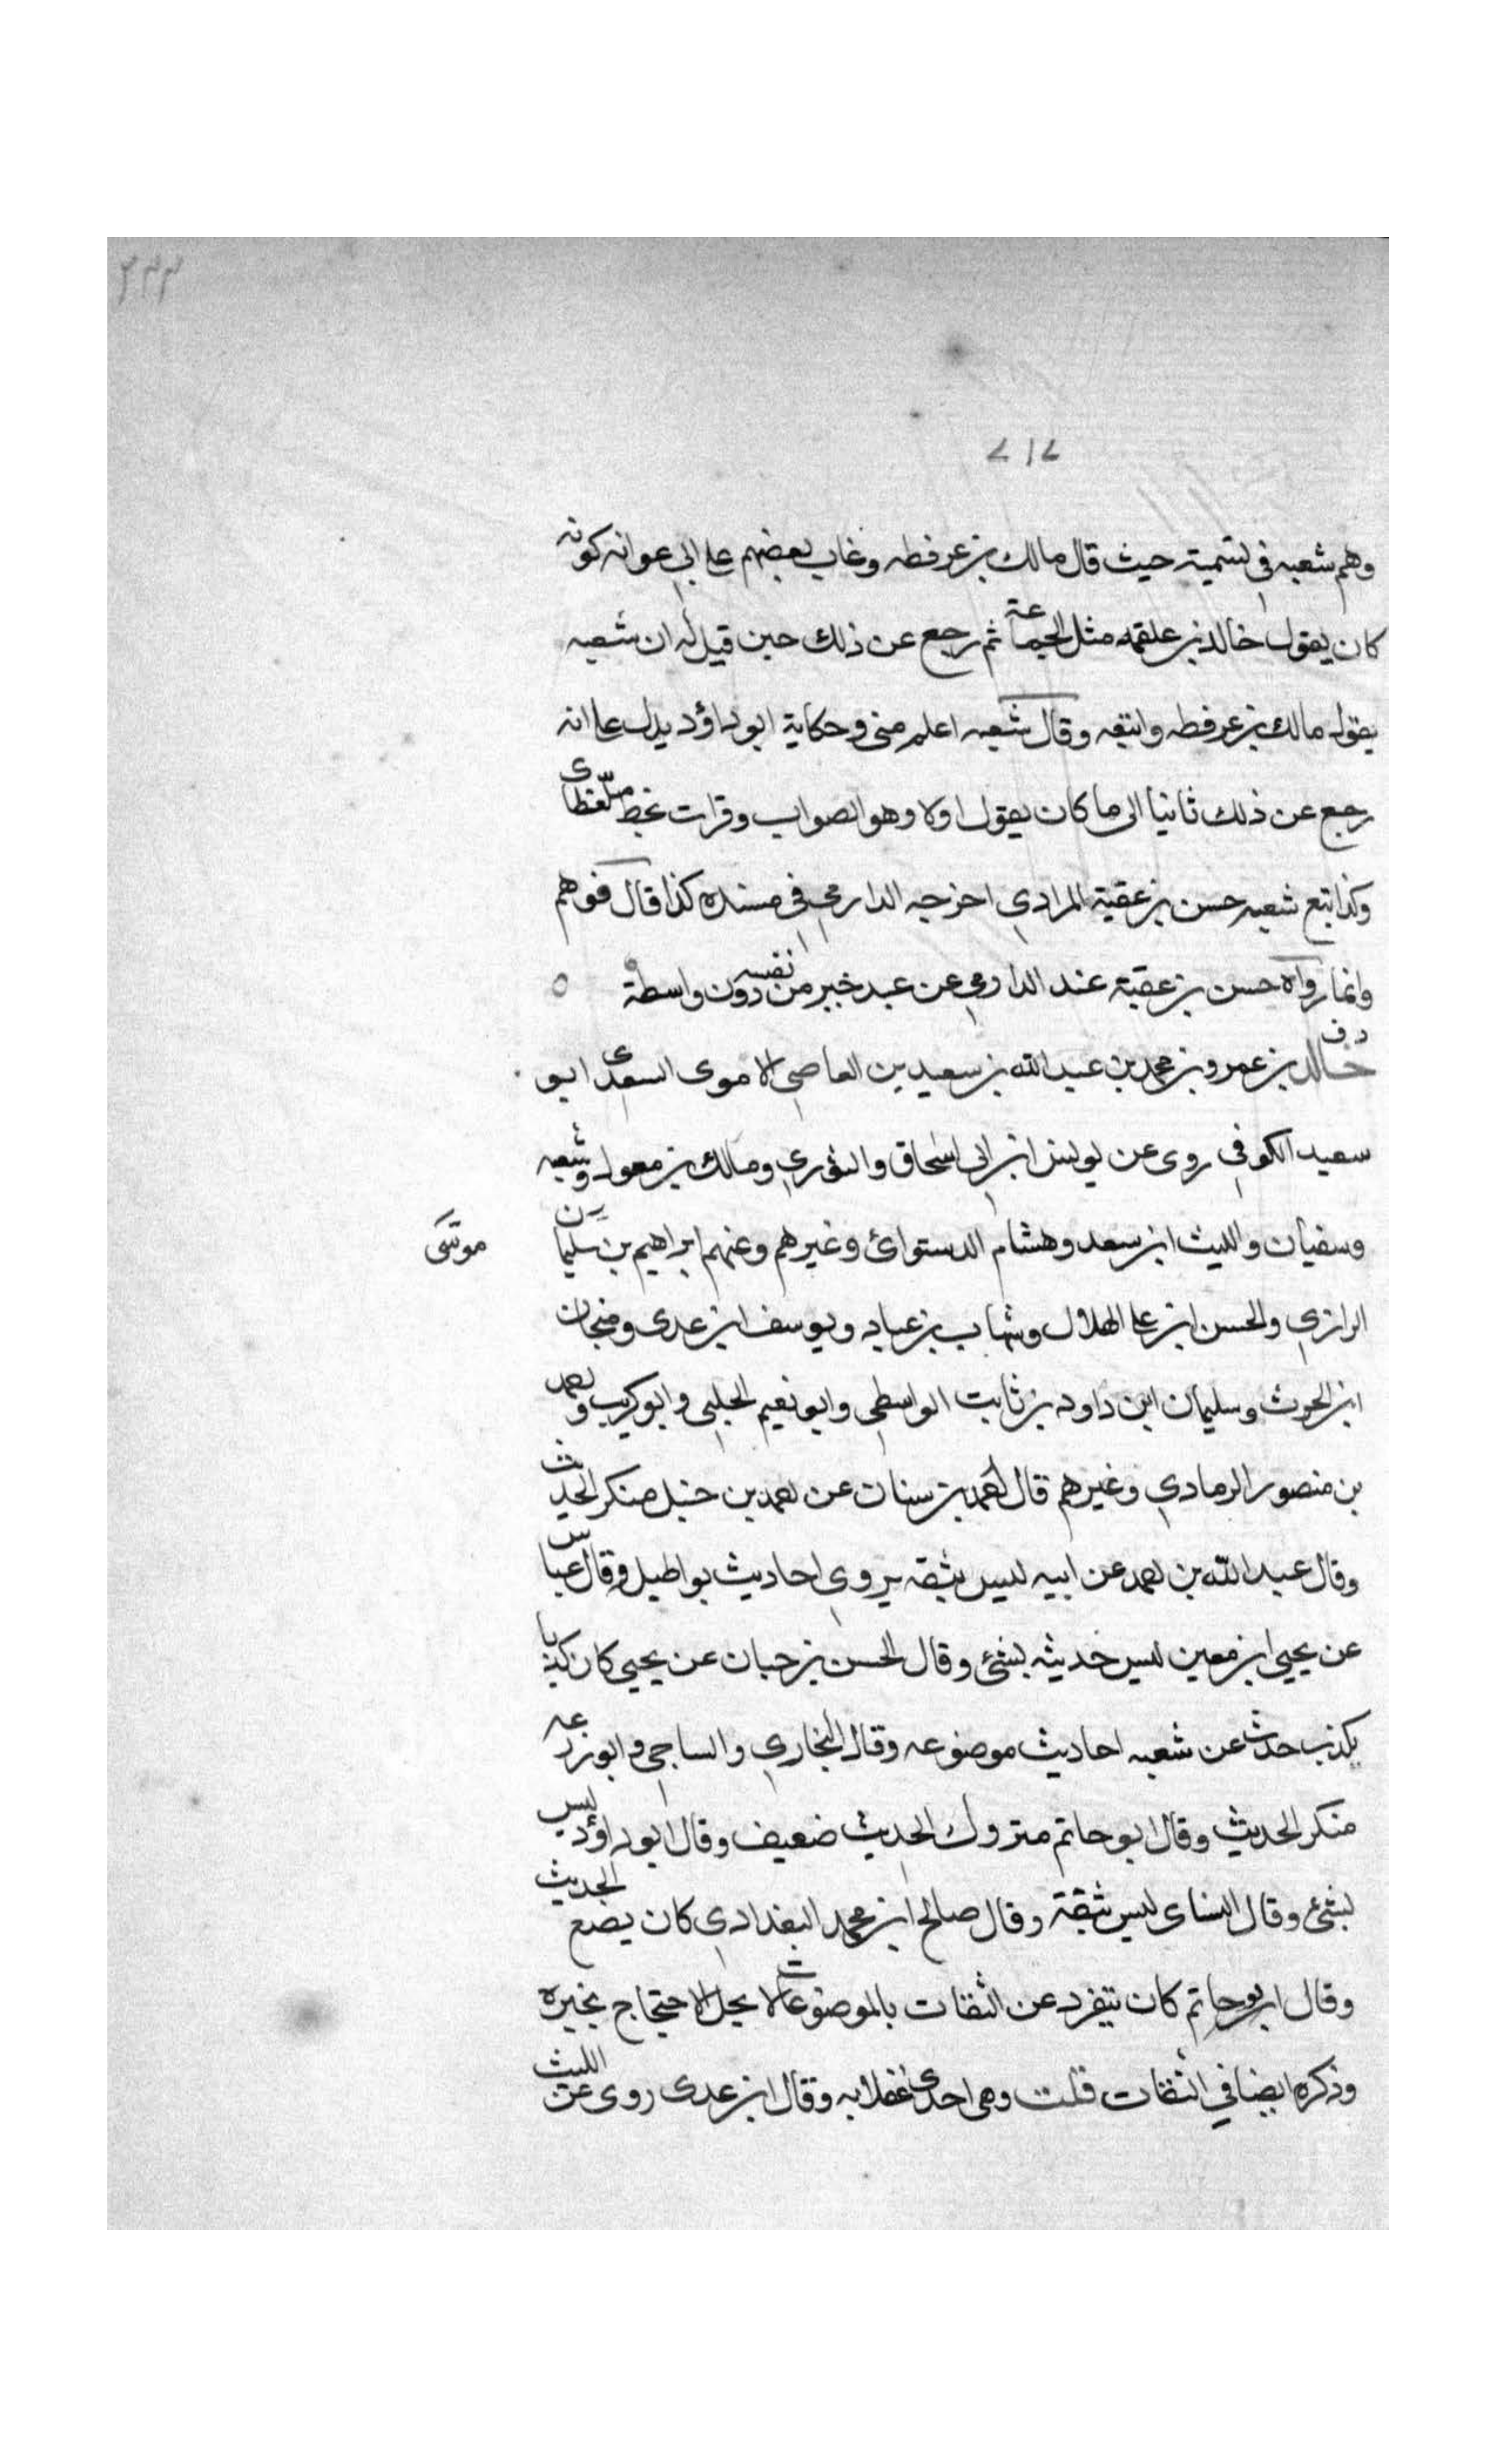 ٧١٧
وهم شعبه في تسميته حيث قال مالك بن عرفطه وعاب بعضهم على ابي عوانه كونه
كان يقول خالد بن علقمه مثل الجماعة ثم رجع عن ذلك حين قيل له ان شعبه
يقول مالك بن عرفطه واتبعه وقال شعبه اعلم مني وحكاية ابو داؤد يدل على انه
رجع عن ذلك ثانيا الى ما كان يقول اولا وهو الصواب وقرات بخط مغلطاى
وكذا تبع شعبه حسن بن عقبة المرادي اخرجه الدارمي في مسنده كذا قال فوهم
وانما رواه حسن بن عقبة عند الدارمي عن عبد خير من نفسه دون واسطة
د ق
خالد بن عمرو بن محمد بن عبد الله بن سعيد بن العاصي الاموى السعدى ابو
سعيد الكوفي روى عن يونس ابن ابي اسحاق والثوري ومالك بن معول وشعبه
وسفيان والليث ابن سعد وهشام الدستوائ وغيرهم وعنهم ابراهيم بن سليمان
موسى
الرازي والحسن ابن على الهلال وشهاب بن عباد ويوسف ابن عدى ومنجاب
ابن الحرث وسليمان ابن داود بن ثابت الواسطي وابو نعيم الحلبي وابو كريب واحمد
بن منصور الرمادي وغيرهم قال احمد بن سنان عن احمد بن حنبل منكر الحديث
وقال عبد الله بن احمد عن ابيه ليس بثقه يروى احاديث بواطيل وقال عباس
عن يحيى ابن معين ليس حديثه بشئ وقال الحسن بن حبان عن يحيى كان كذابا
يكذب حدث عن شعبه احاديث موضوعه وقال البخاري والساجي وابو زرعه
منكر الحديث وقال ابو حاتم متروك الحديث ضعيف وقال ابو داؤد ليس
بشئ وقال النساى ليس بثقة وقال صالح ابن محمد البغدادي كان يضع الحديث
وقال ابو حاتم كان يتفرد عن الثقات بالموضوعات لا يحل الاحتجاج بخبره
وذكره ايضا في الثقات قلت وهى احدى غفلاته وقال ابن عدى روى عن الليث